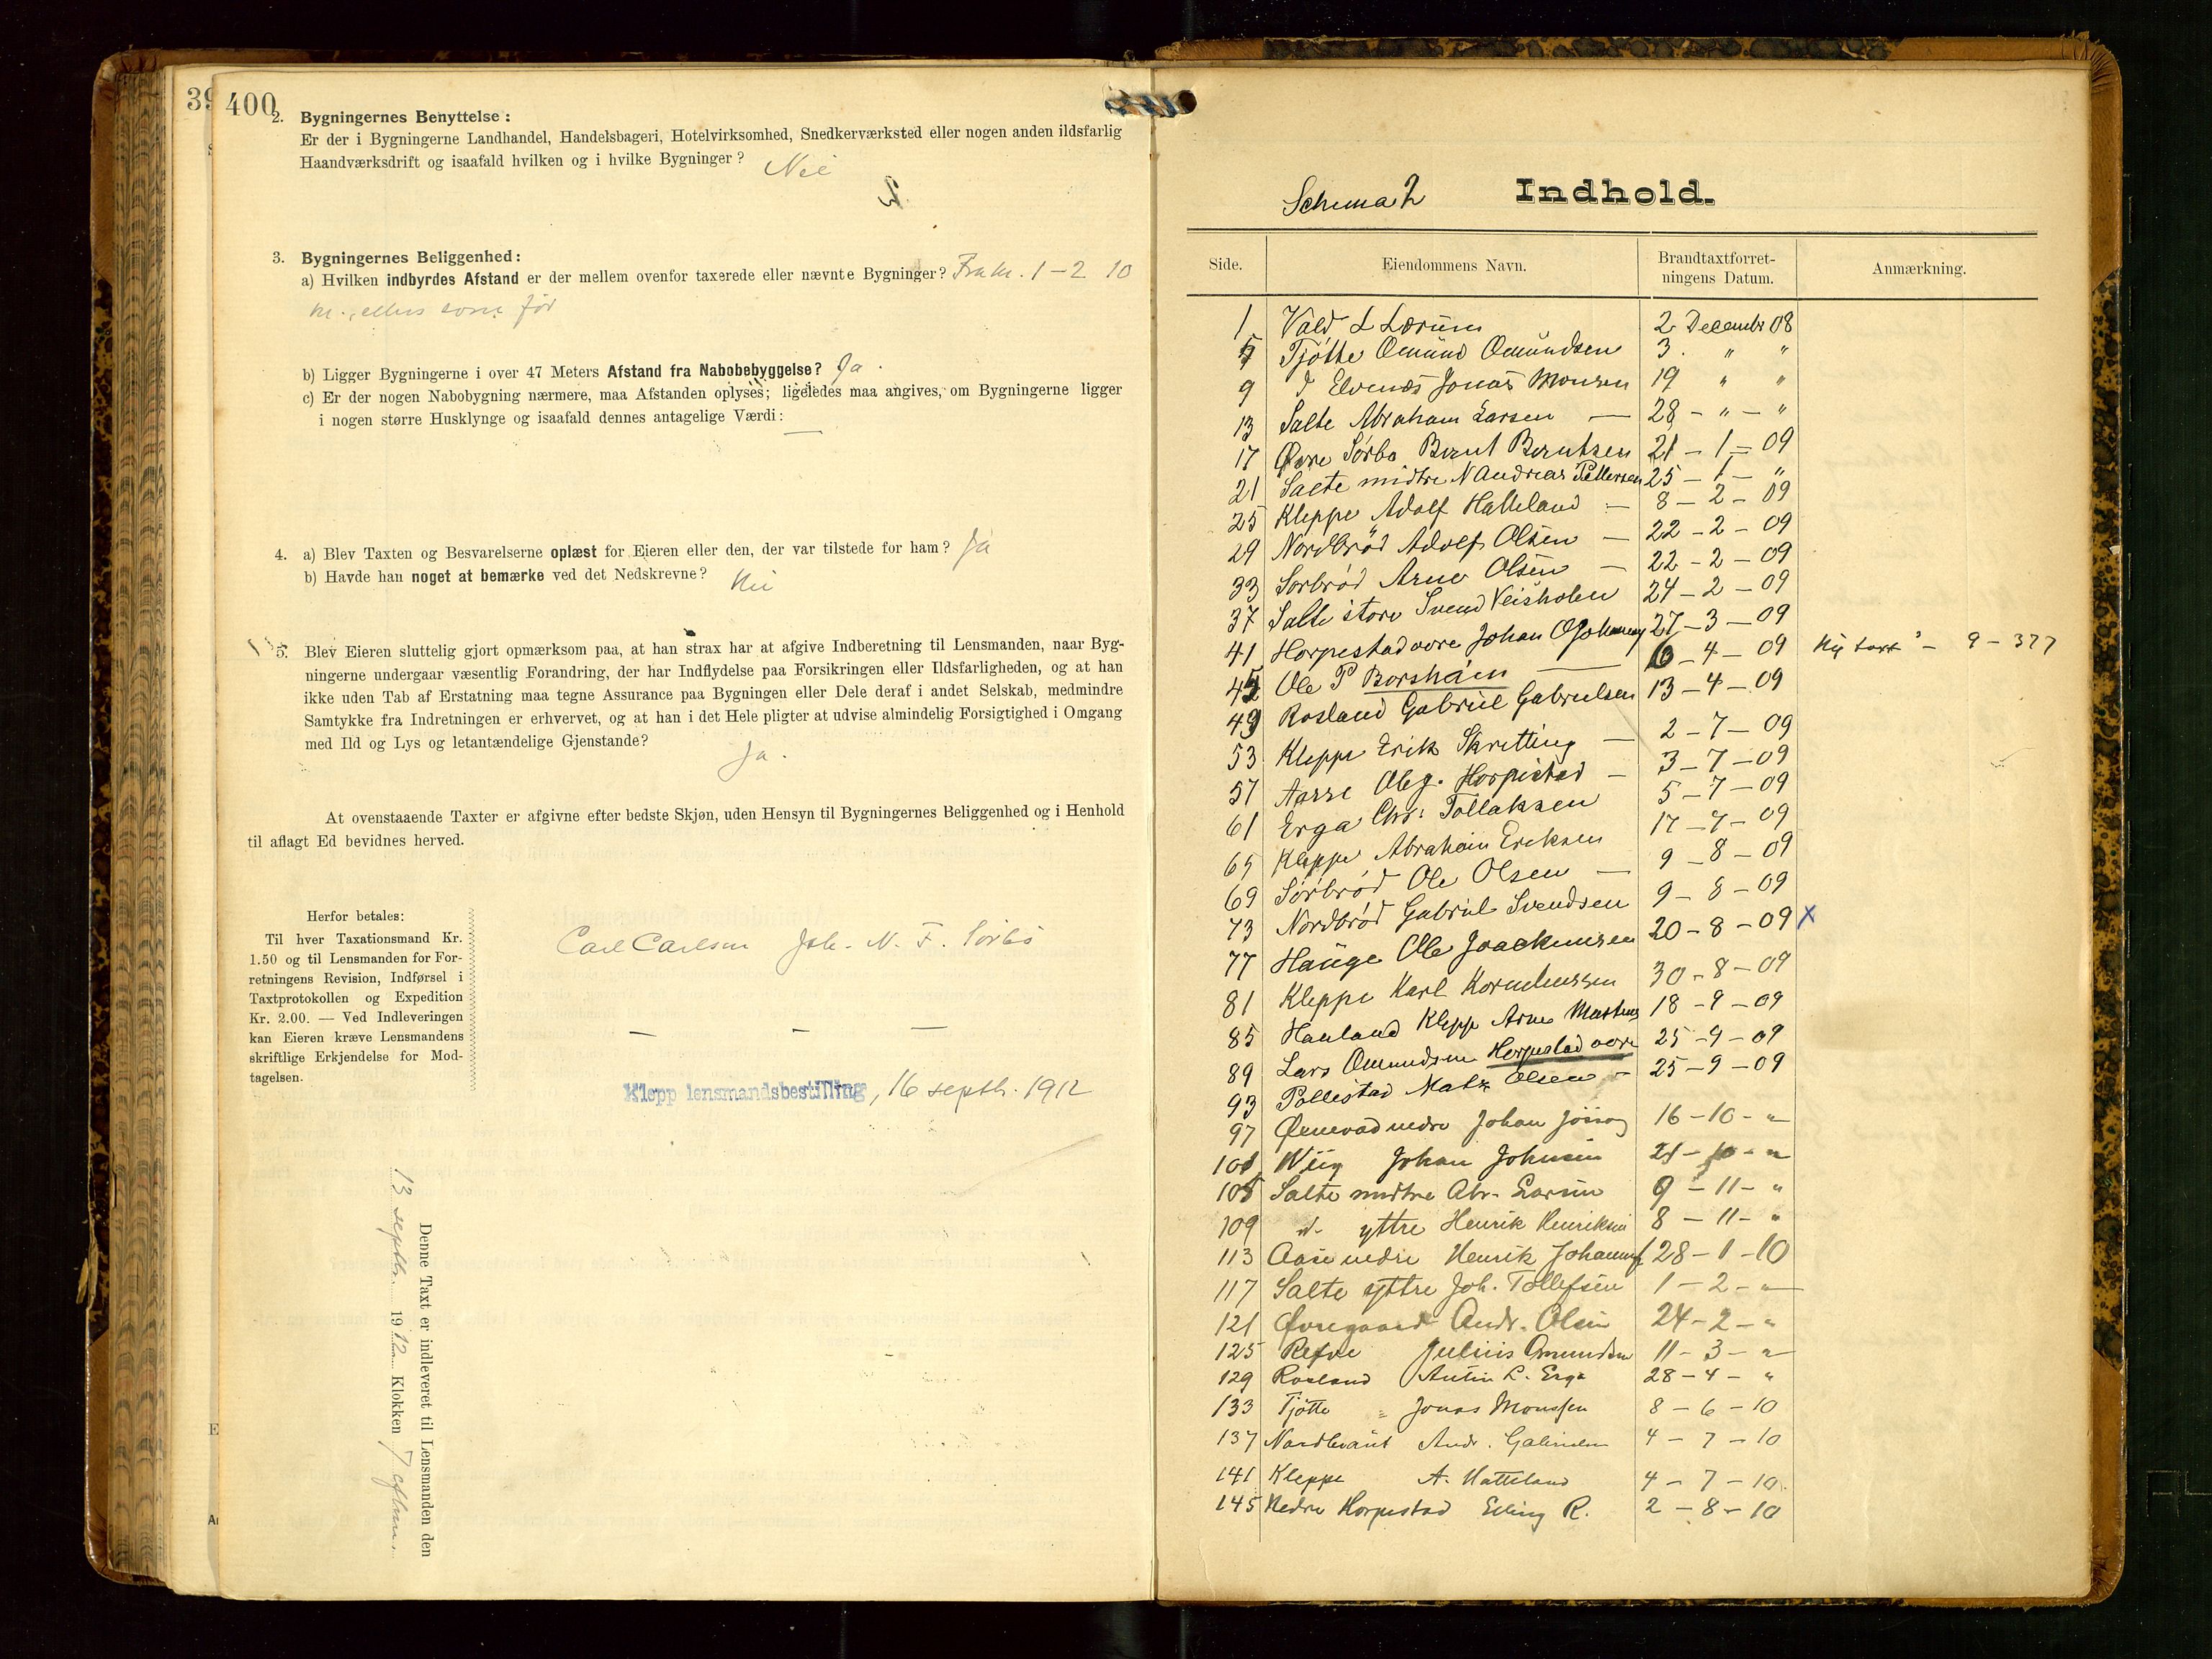 39
400
2. Bygningernes Benyttelse:
Er der i Bygningerne Landhandel, Handelsbageri, Hotelvirksomhed, Snedkerværksted eller nogen anden ildsfarlig
Haandværksdrift og isaafald hvilken og i hvilke Bygninger? Nei
3. Bygningernes Beliggenhed:
a) Hvilken indbyrdes Afstand er der mellem ovenfor taxerede eller nævnte Bygninger? Fra 1-2 10
m., ellers som før
b) Ligger Bygningerne i over 47 Meters Afstand fra Nabobebyggelse? Ja.
c) Er der nogen Nabobygning nærmere, maa Afstanden oplyses; ligeledes maa angives, om Bygningerne ligger
i nogen større Husklynge og isaafald dennes antagelige Værdi: —
4. a) Blev Taxten og Besvarelserne oplæst for Eieren eller den, der var tilstede for ham? Ja
b) Havde han noget at bemærke ved det Nedskrevne? Nei
5. Blev Eieren sluttelig gjort opmærksom paa, at han strax har at afgive Indberetning til Lensmanden, naar Byg-
ningerne undergaar væsentlig Forandring, der har Indflydelse paa Forsikringen eller Ildsfarligheden, og at han
ikke uden Tab af Erstatning maa tegne Assurance paa Bygningen eller Dele deraf i andet Selskab, medmindre
Samtykke fra Indretningen er erhvervet, og at han i det Hele pligter at udvise almindelig Forsigtighed i Omgang
med Ild og Lys og letantændelige Gjenstande? Ja.
At ovenstaaende Taxter er afgivne efter bedste Skjøn, uden Hensyn til Bygningernes Beliggenhed og i Henhold
til aflagt Ed bevidnes herved.
Herfor betales:
Til hver Taxationsmand Kr.
1.50 og til Lensmanden for For-
retningens Revision, Indførsel i
Taxtprotokollen og Expedition
Kr. 2.00. — Ved Indleveringen
kan Eieren kræve Lensmandens
skriftlige Erkjendelse for Mod-
tagelsen.
Carl Carlsen Joh. N. F. Sørbø
— — —
Klepp lensmandsbestilling, 16 septbr. 1912
Denne Taxt er indleveret til Lensmanden den
13 septbr. 1912 Klokken 7 efterm.
Schema 2 Indhold.
Side. Eiendommens Navn. Brandtaxtforret-ningens Datum. Anmærkning.
1 Vald L Lærum 2 Decembr 08
5 Tjøtte Omund Omundsen 3. " "
9 Elvenæs Jonas Monsen 19 " "
13 Salte Abraham Larsen — 28 - " - "
17 Øvre Sørbø Bernt Berntsen 21 - 1 - 09
21 Salte midtre N Andreas Pettersen 25 - 1 - "
25 Kleppe Adolf Hatteland — 8 - 2 - 09
29 Nordbrød Adolf Olsen — 22 - 2 - 09
33 Sørbrød Arne Olsen — 22 - 2 - 09
37 Salte store Svend Veisholen 24 - 2 - 09
41 Horpestad øvre Johan O 27 - 3 - 09
45 Ole P Borsheim — 6 - 4 - 09 Ny taxt 9 - 377
49 Rosland Gabriel Gabrielsen 13 - 4 - 09
53 Kleppe Erik Skretting — 2 - 7 - 09
57 Aarre Ole g. Horpestad — 3 - 7 - 09
61 Erga Chr: Tollaksen 5 - 7 - 09
65 Kleppe Abraham Eriksen 17 - 7 - 09
69 Sørbrød Ole Olsen — 9 - 8 - 09
73 Nordbrød Gabriel Svendsen 9 - 8 - 09
77 Hauge Ole Joackimsen 20 - 8 - 09 X
81 Kleppe Karl Korneliussen 30 - 8 - 09
85 Hauland Klepp Arne 18 - 9 - 09
89 Lars Omundsen Horpestad øvre 25 - 9 - 09
93 Pollestad Mats Olsen — 25 - 9 - 09
97 Øxnevad nedre Johan 16 - 10 - "
101 Wiig Johan Johnsen 21 - 10 - "
105 Salte midtre Abr. Larsen 9 - 11 - "
109 d. yttre Henrik Henriksen 8 - 11 - "
113 Aase nedre Henrik 28 - 1 - 10
117 Salte yttre Joh. Tollefsen 1 - 2 - "
121 Øvregaard Andr. Olsen 24 - 2 - "
125 Refve Julius Omundsen 11 - 3 - "
129 Rosland Autin L. Erga 28 - 4 - "
133 Tjøtte Jonas Monssen 8 - 6 - 10
137 Andr. 4 - 7 - 10
141 Kleppe A. Hatteland 4 - 7 - 10
145 Nedre Horpestad Elling R. 2 - 8 - 10